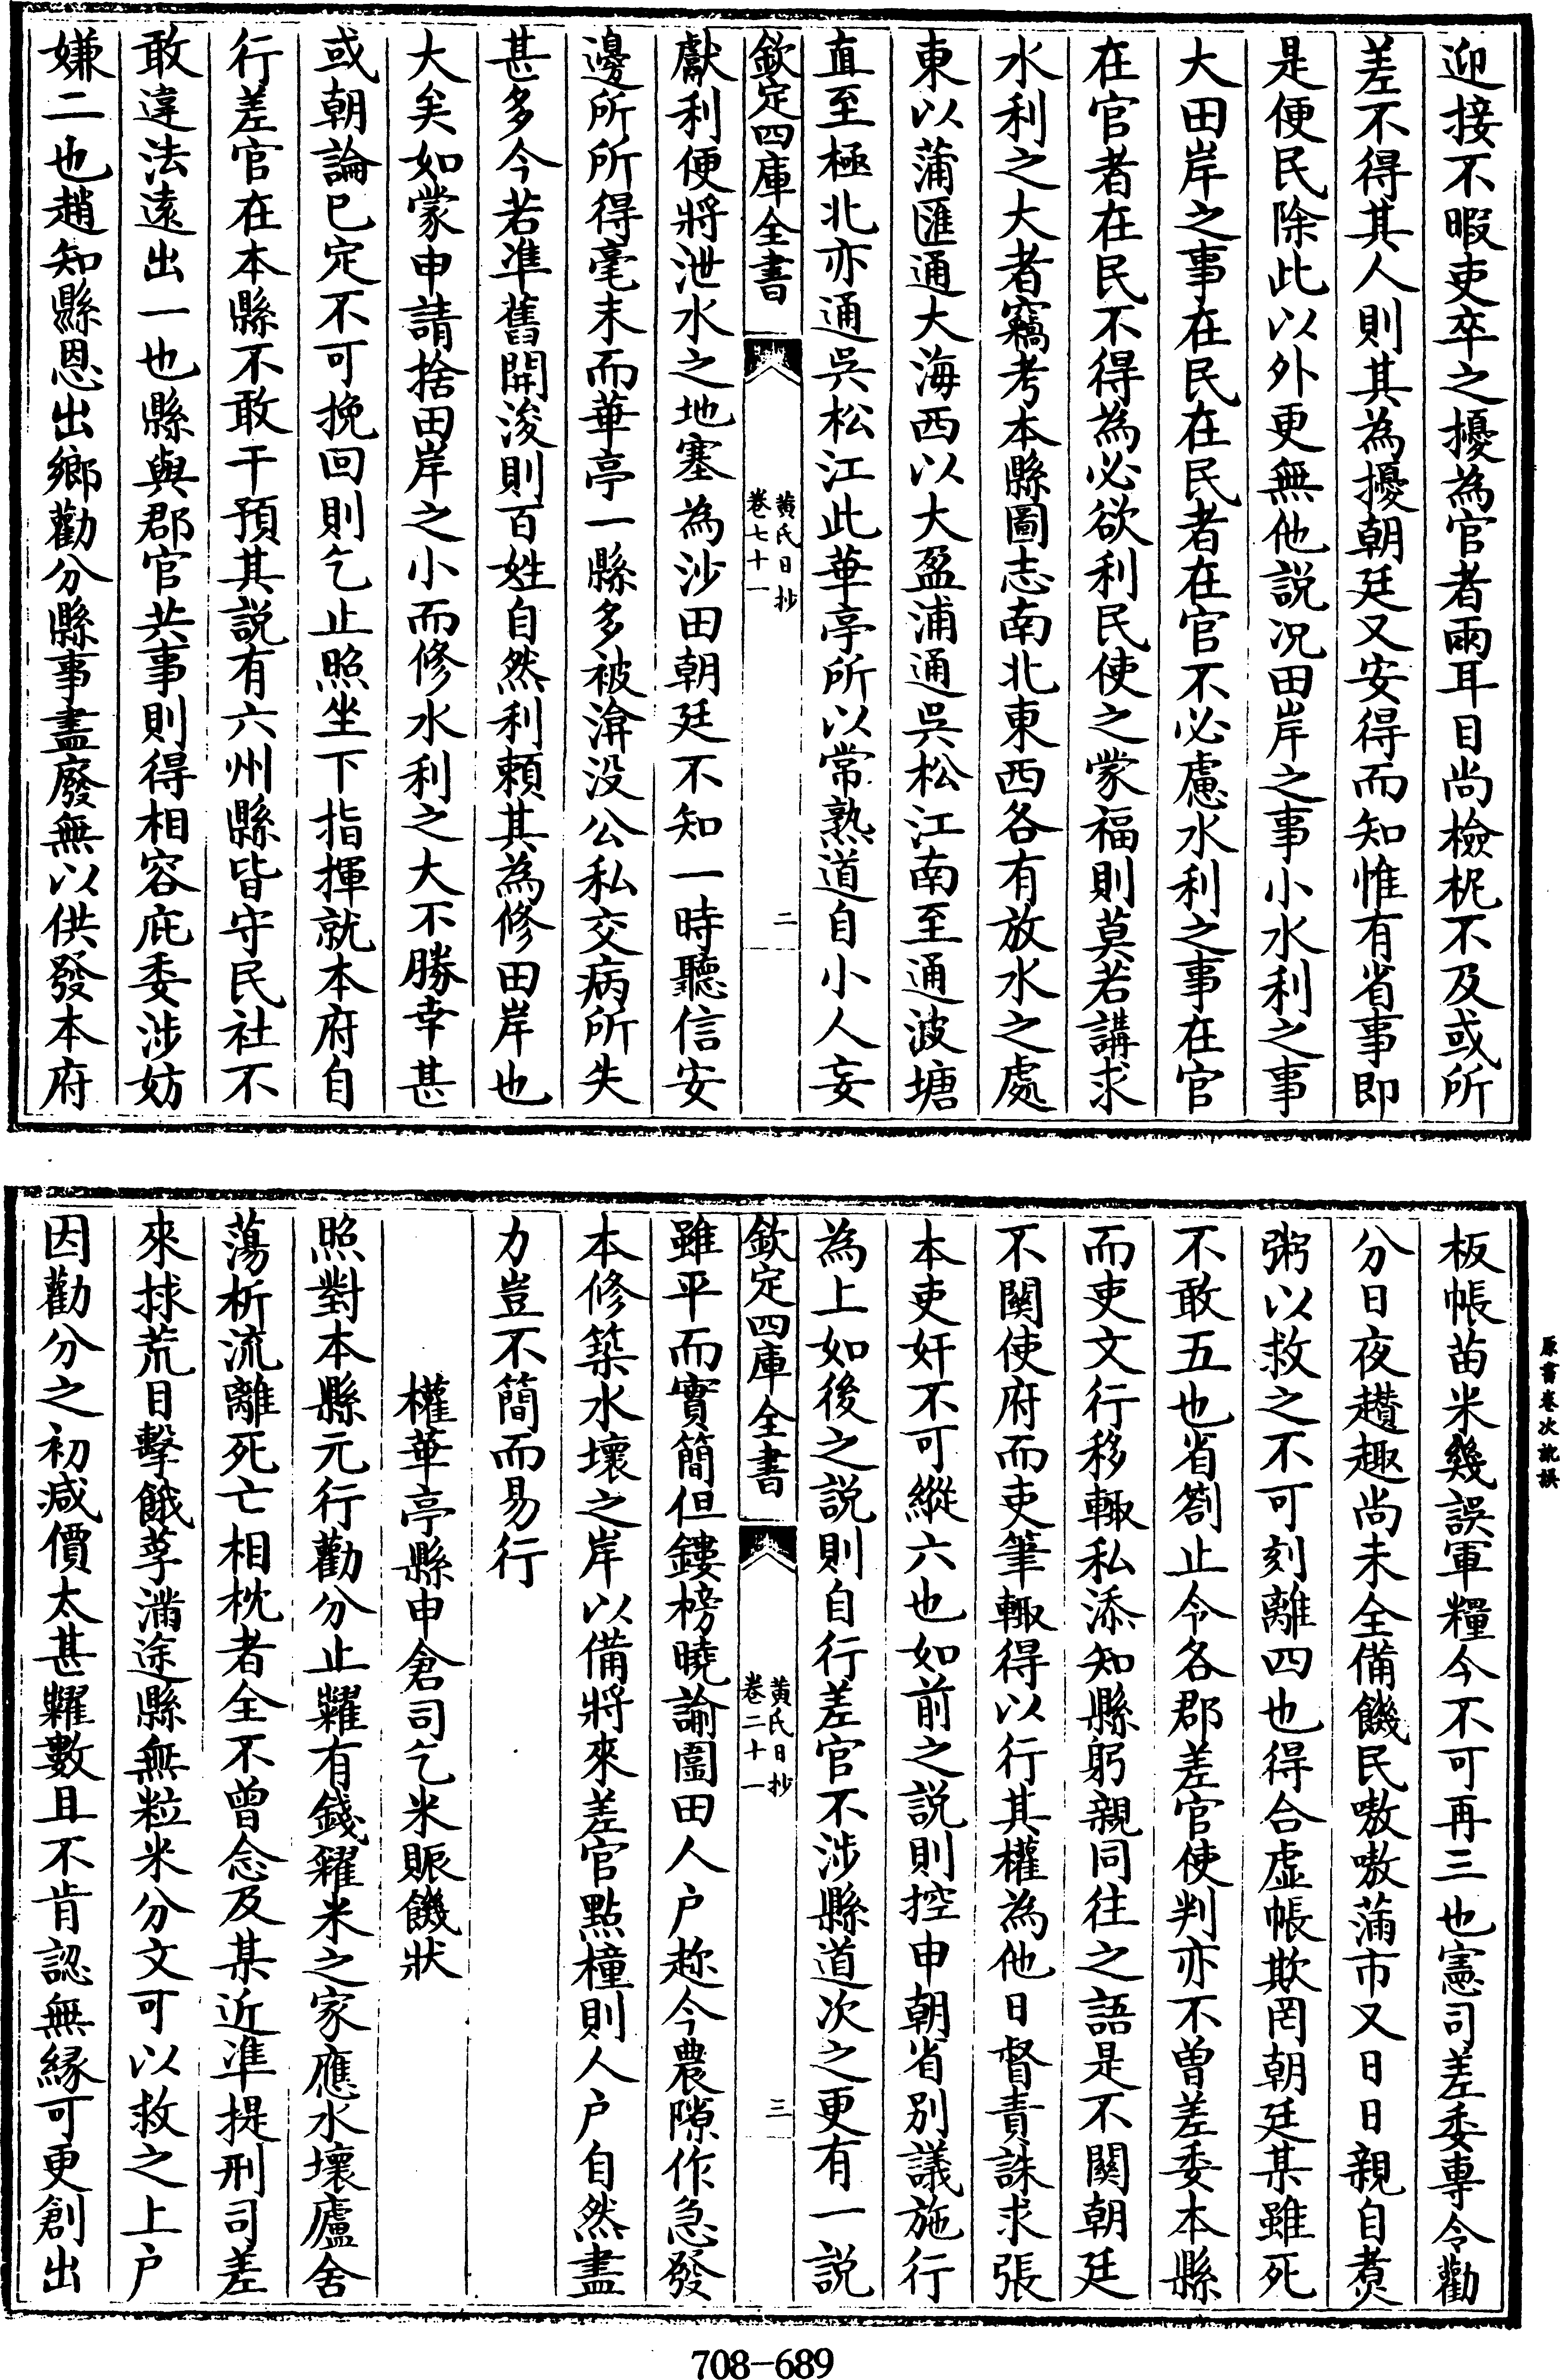 迎接不暇吏卒之擾為官者兩耳目尚檢柅不及或所
差不得其人則其為擾朝廷又安得而知惟有省事即
是便民除此以外更無他説況田岸之事小水利之事
大田岸之事在民在民者在官不必慮水利之事在官
在官者在民不得為必欲利民使之蒙福則莫若講求
水利之大者竊考本縣圖志南北東西各有放水之處
東以蒲匯通大海西以大盈浦通吳松江南至通波塘
直至極北亦通吳松江此華亭所以常熟道自小人妄
欽定四庫全書
黄氏日抄
卷七十一
二
獻利便將泄水之地塞為沙田朝廷不知一時聽信安
邊所所得毫末而華亭一縣多被渰没公私交病所失
甚多今若準舊開浚則百姓自然利賴其為修田岸也
大矣如蒙申請捨田岸之小而修水利之大不勝幸甚
或朝論已定不可挽回則乞止照坐下指揮就本府自
行差官在本縣不敢干預其説有六州縣皆守民社不
敢違法遠出一也縣與郡官共事則得相容庇委涉妨
嫌二也趙知縣恩出鄉勸分縣事盡廢無以供發本府
板帳苗米幾誤軍糧今不可再三也憲司差委專令勸
分日夜趲趣尚未全備饑民嗷嗷蒲市又日日親自煑
粥以救之不可刻離四也得合虚帳欺罔朝廷某雖死
不敢五也省劄止令各郡差官使判亦不曽差委本縣
而吏文行移輙私添知縣躬親同往之語是不關朝廷
不關使府而吏筆輙得以行其權為他日督責誅求張
本吏奸不可縱六也如前之説則控申朝省别議施行
為上如後之説則自行差官不涉縣道次之更有一説
欽定四庫全書
黄氏日抄
卷二十一
三
雖平而實簡但鏤榜曉諭圍田人户趂今農隙作急發
本修築水壞之岸以備將來差官點橦則人户自然盡
力豈不簡而易行
權華亭縣申倉司乞米賑饑狀
照對本縣元行勸分止糶有錢糴米之家應水壞廬舍
蕩析流離死亡相枕者全不曾念及某近準提刑司差
來捄荒目擊餓莩滿途縣無粒米分文可以救之上户
因勸分之初减價太甚糶數且不肯認無縁可更創出
原書卷次訛誤
708-689